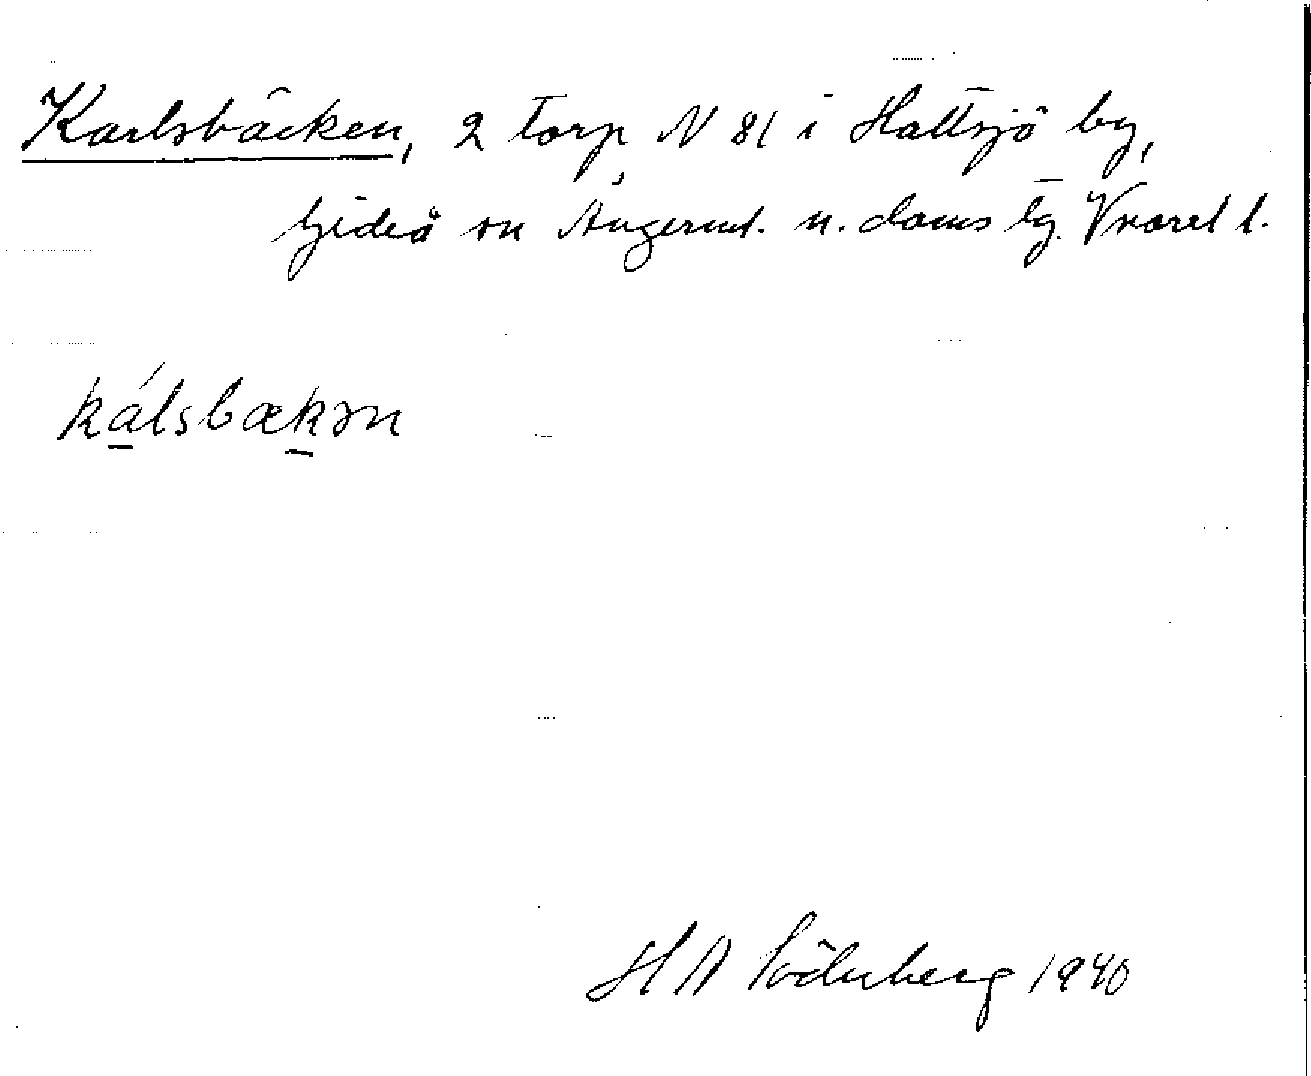 Karlsbäcken, 2 torp N 81 i Hattsjö by,
Gideå sn Ångerml. n. doms tg. V norrl l.
kálsbækən
H A Söderberg 1940